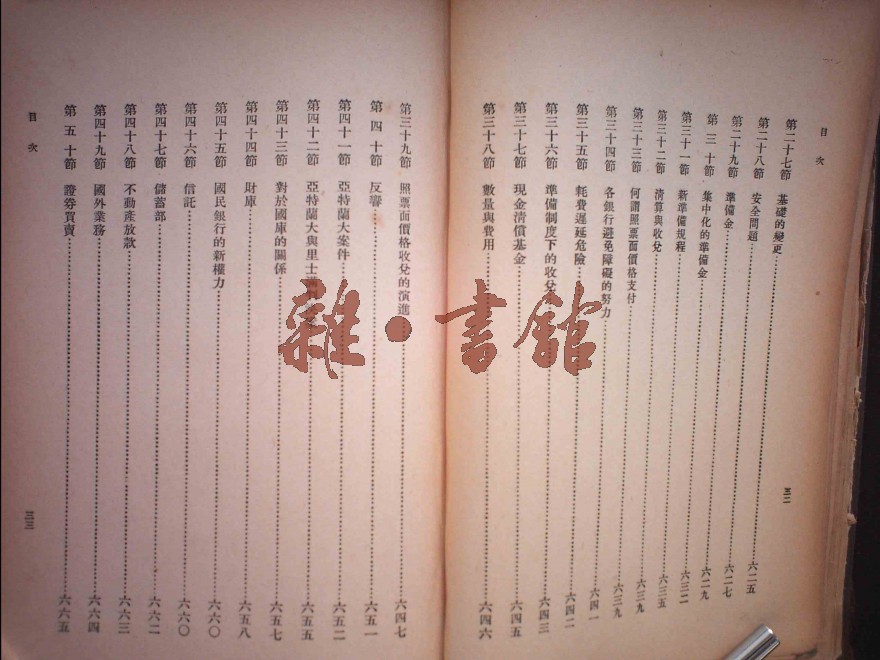 目次
第二十七節 基礎的變更 六二五
第二十八節 安全問題 六二七
第二十九節 準備金 六二九
第三十節 集中化的準備金 六三二
第三十一節 新準備規程 六三五
第三十二節 清算與收兌 六三九
第三十三節 何謂照票面價格支付 六三九
第三十四節 各銀行避免障礙的努力 六四一
第三十五節 耗費遲延危險 六四二
第三十六節 準備制度下的收兌 六四三
第三十七節 現金清償基金 六四五
第三十八節 數量與費用 六四六
三二
第三十九節 照票面價格收兌的演進 六四七
第四十節 反響 六五一
第四十一節 亞特蘭大案件 六五二
第四十二節 亞特蘭大與里士滿 六五五
第四十三節 對於國庫的關係 六五七
第四十四節 財庫 六五八
第四十五節 國民銀行的新權力 六六〇
第四十六節 信託 六六〇
第四十七節 儲蓄部 六六二
第四十八節 不動產放款 六六三
第四十九節 國外業務 六六四
第五十節 證券買賣 六六五
目次
三三
雜·書館